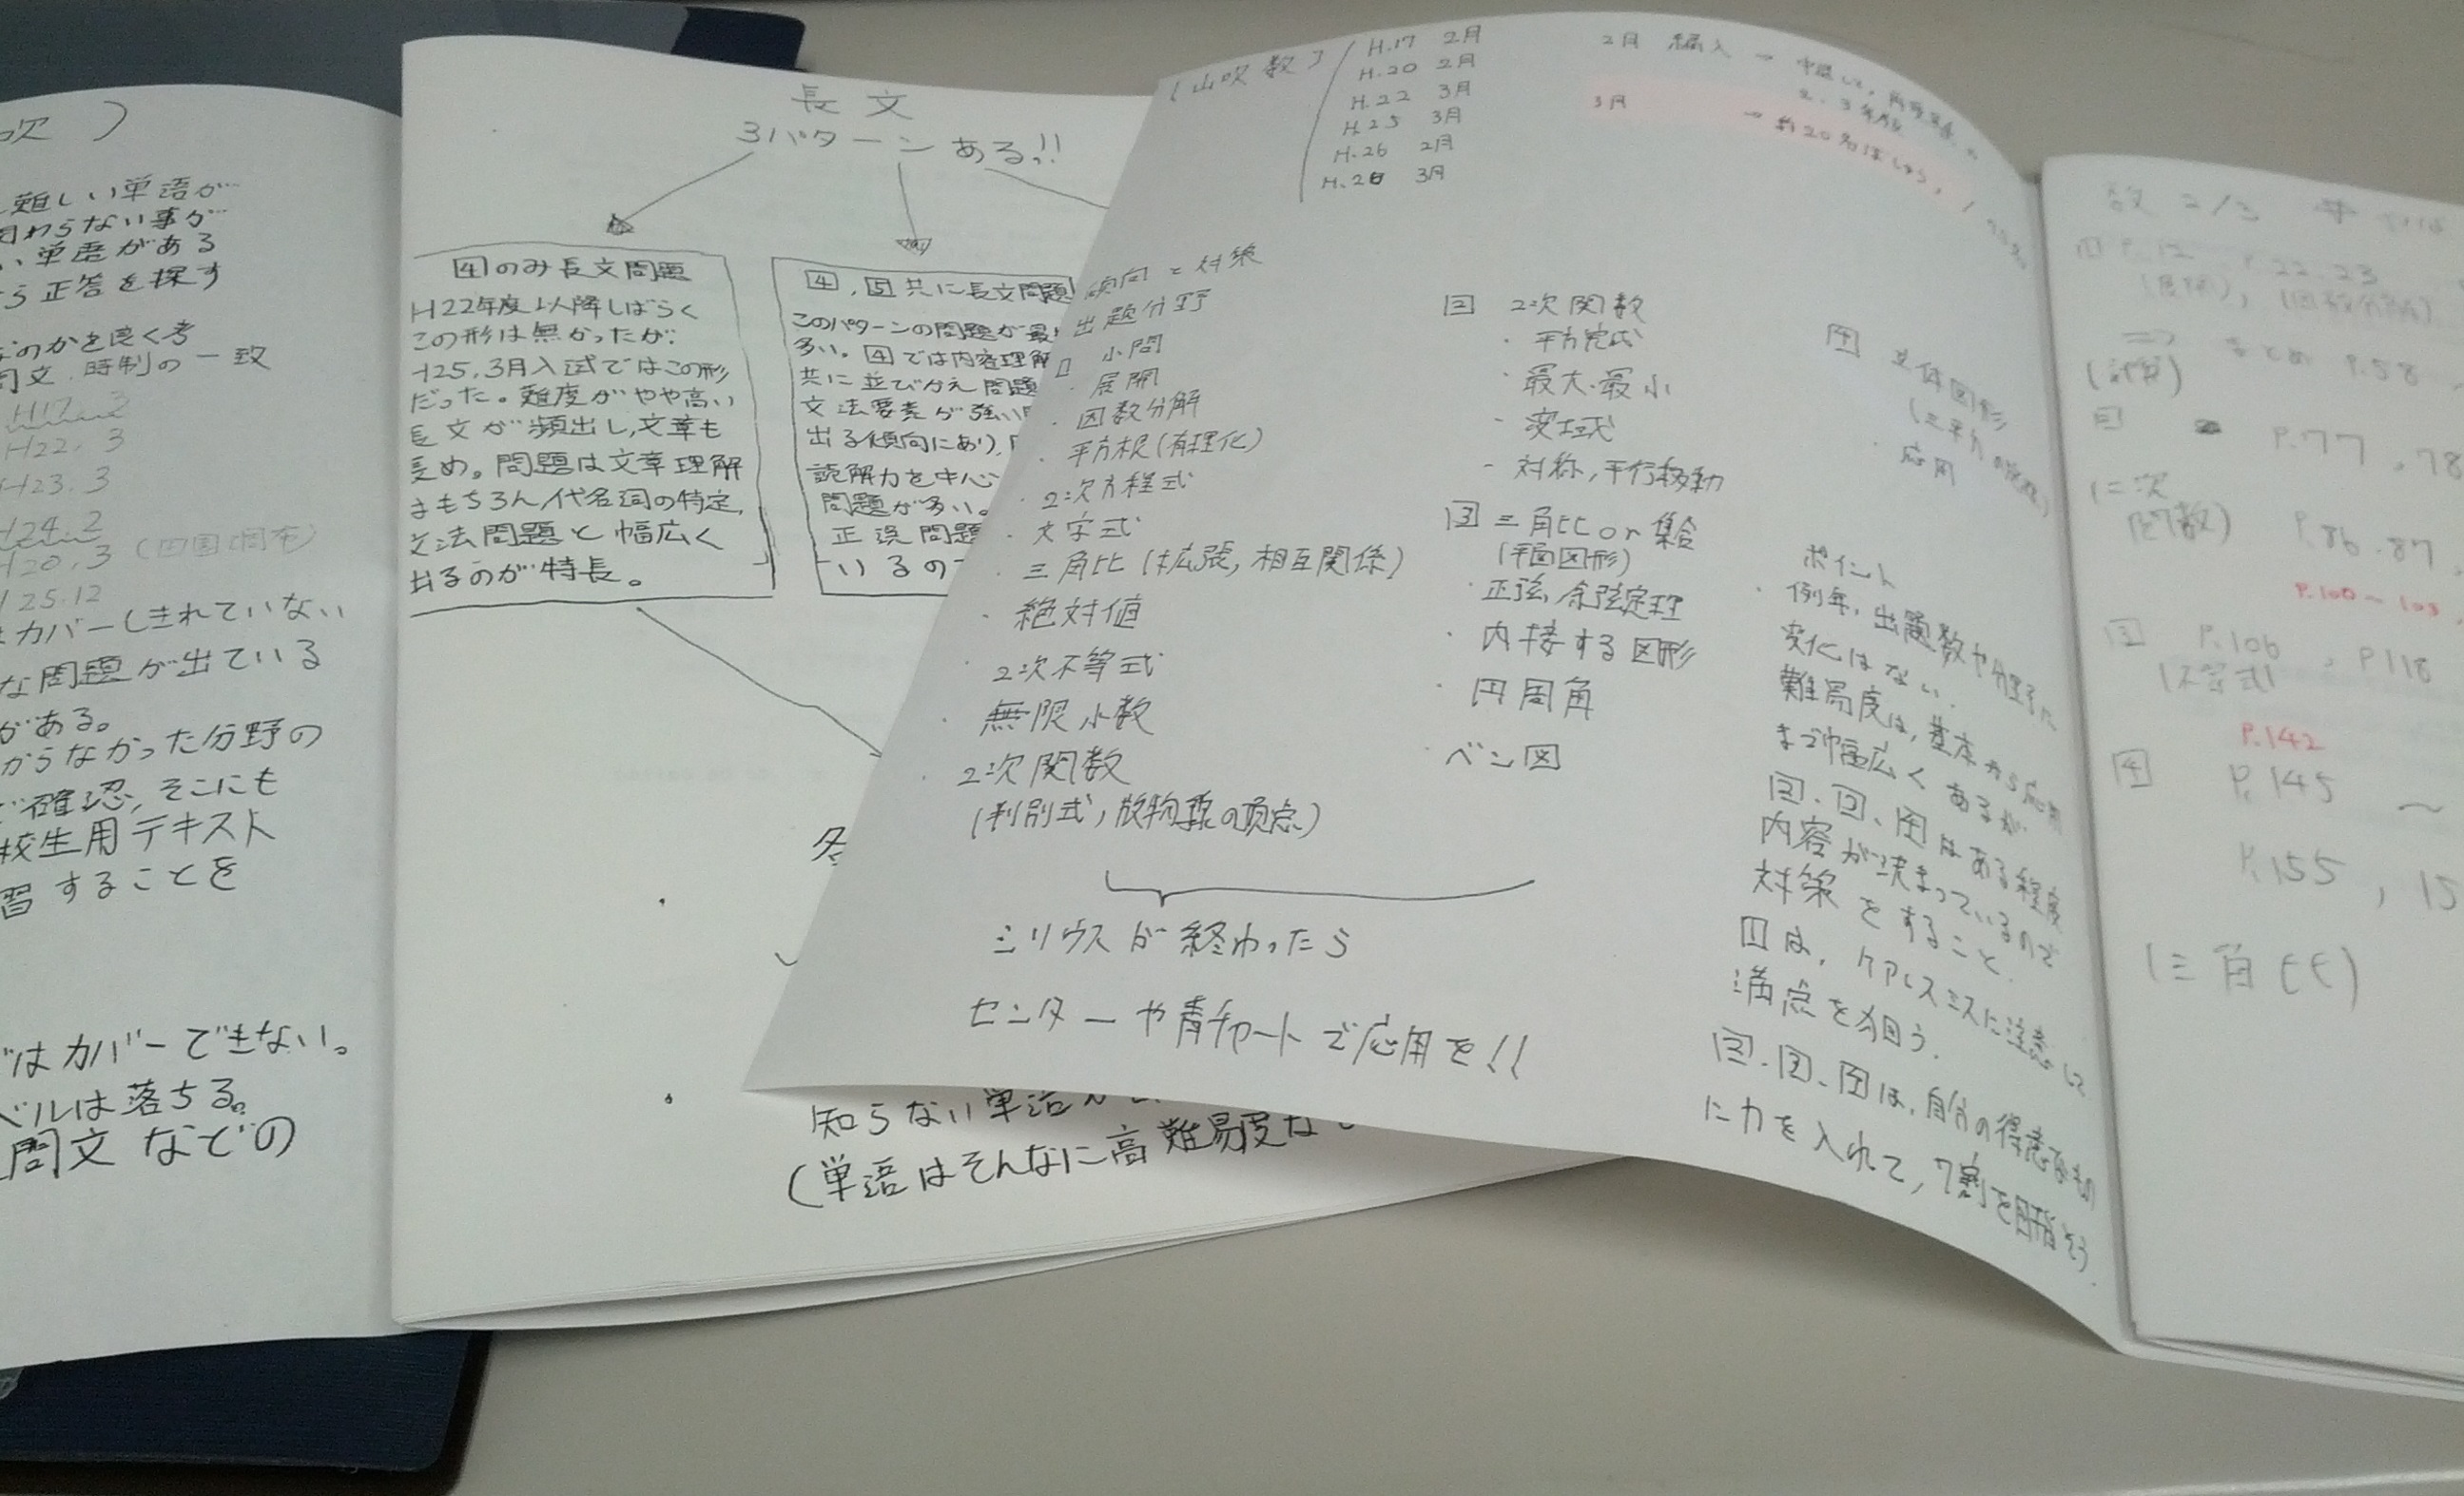 吹)
難しい単語が
わらない事が
い単語がある
ら正答を探す
なのかを良く考
問文、時制の一致
H17. 3
H22. 3
H23. 3
H24. 2
H20. 3
H25.12
カバーしきれていない
な問題が出ている
がある。
からなかった分野の
で確認,そこにも
校生用テキスト
習することを
ではカバーできない。
ベルは落ちる。
問文などの
長文
3パターンある!!
4のみ長文問題
H22年度以降しばらく
この形は無かったが
H25.3月入試ではこの形
だった。難度がやや高い
長文が頻出し,文章も
長め。問題は文章理解
はもちろん,代名詞の特定,
文法問題と幅広く
出るのが特長。
4,5共に長文問題
このパターンの問題が最
多い。4では内容理解
共に並びかえ問題
文法要素が強い
出る傾向にあり,
読解力を中心
問題が多い。
正誤問題
いるの
知らない単語が
(単語はそんなに高難易度な
(山吹 数)
H.17 2月
H.20 2月
H.22 3月
H.25 3月
H.26 2月
H.26 3月
2月 編入 →
3月 → 約20名
傾向と対策
出題分野
1 小問
・展開
・因数分解
・平方根(有理化)
・2次方程式
・文字式
・三角比(拡張,相互関係)
・絶対値
・2次不等式
無限小数
・2次関数
(判別式,放物線の頂点)
シリウスが終わったら
センターや青チャートで応用を!!
2 2次関数
・平方完成
・最大・最小
・変域
・対称,平行移動
3 三角比or集合
(平面図形)
・正弦,余弦定理
・内接する図形
・円周角
・ベン図
4 立体図形
・応用
ポイント
・例年,出題数や分野に
変化はない。
難易度は,基本から応用
まで幅広くあるが
2、3、4はある程度
内容が決まっているので
対策をすること。
1は,ケアレスミスに注意して
満点を狙う。
2、3、4は,自分の得意なもの
に力を入れて,7割を目指そう。
数 2/3
1 P.12 P.22.23
(展開),(因数分解)
⇒ まとめ P.58
(計算)
2 P.77,78
(二次
関数)
P.86.87
P.100〜103
3 P.106,P.118
(不等式)
P.142
4 P.145 〜
P.155,15
(三角比)